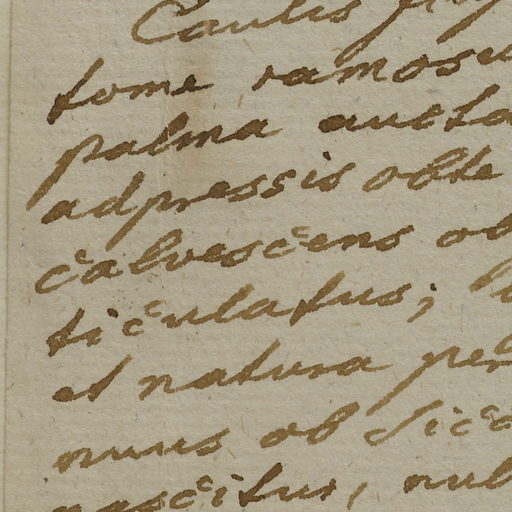 Caulis
tome ramosu
palma aucta
adpressis obte
calvescens ob
ticulatus; 
et natura per
nuus ob sicc
nascitur, nul